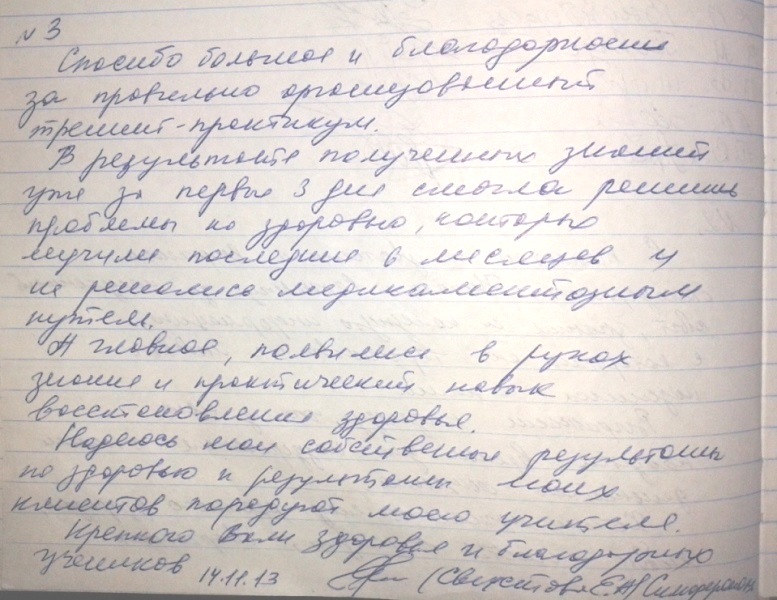 № 3
Спасибо большое и благодарности
за правильно организованный
тренинг-практикум.
В результате полученных знаний
уже за первые 3 дня смогла решить
проблемы по здоровью, которые
мучили последние 6 месяцев и
не решались медикаментозным
путем.
А главное, появились в руках
знание и практический навык
восстановления здоровья.
Надеюсь мои собственные результаты
по здоровью и результаты моих
клиентов порадуют моего учителя.
Крепкого Вам здоровья и благодарных
учеников 14.11.13